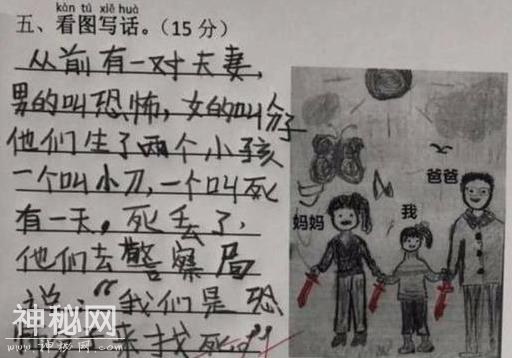 kàn tú xiě huà
五、看图写话。(15分)
从前有一对夫妻,
男的叫恐怖,女的叫分子
他们生了两个小孩
一个叫小刀,一个叫死
有一天,死丢了,
他们去警察局
说:“我们是恐
来找死的”
妈妈
我
爸爸
神秘网